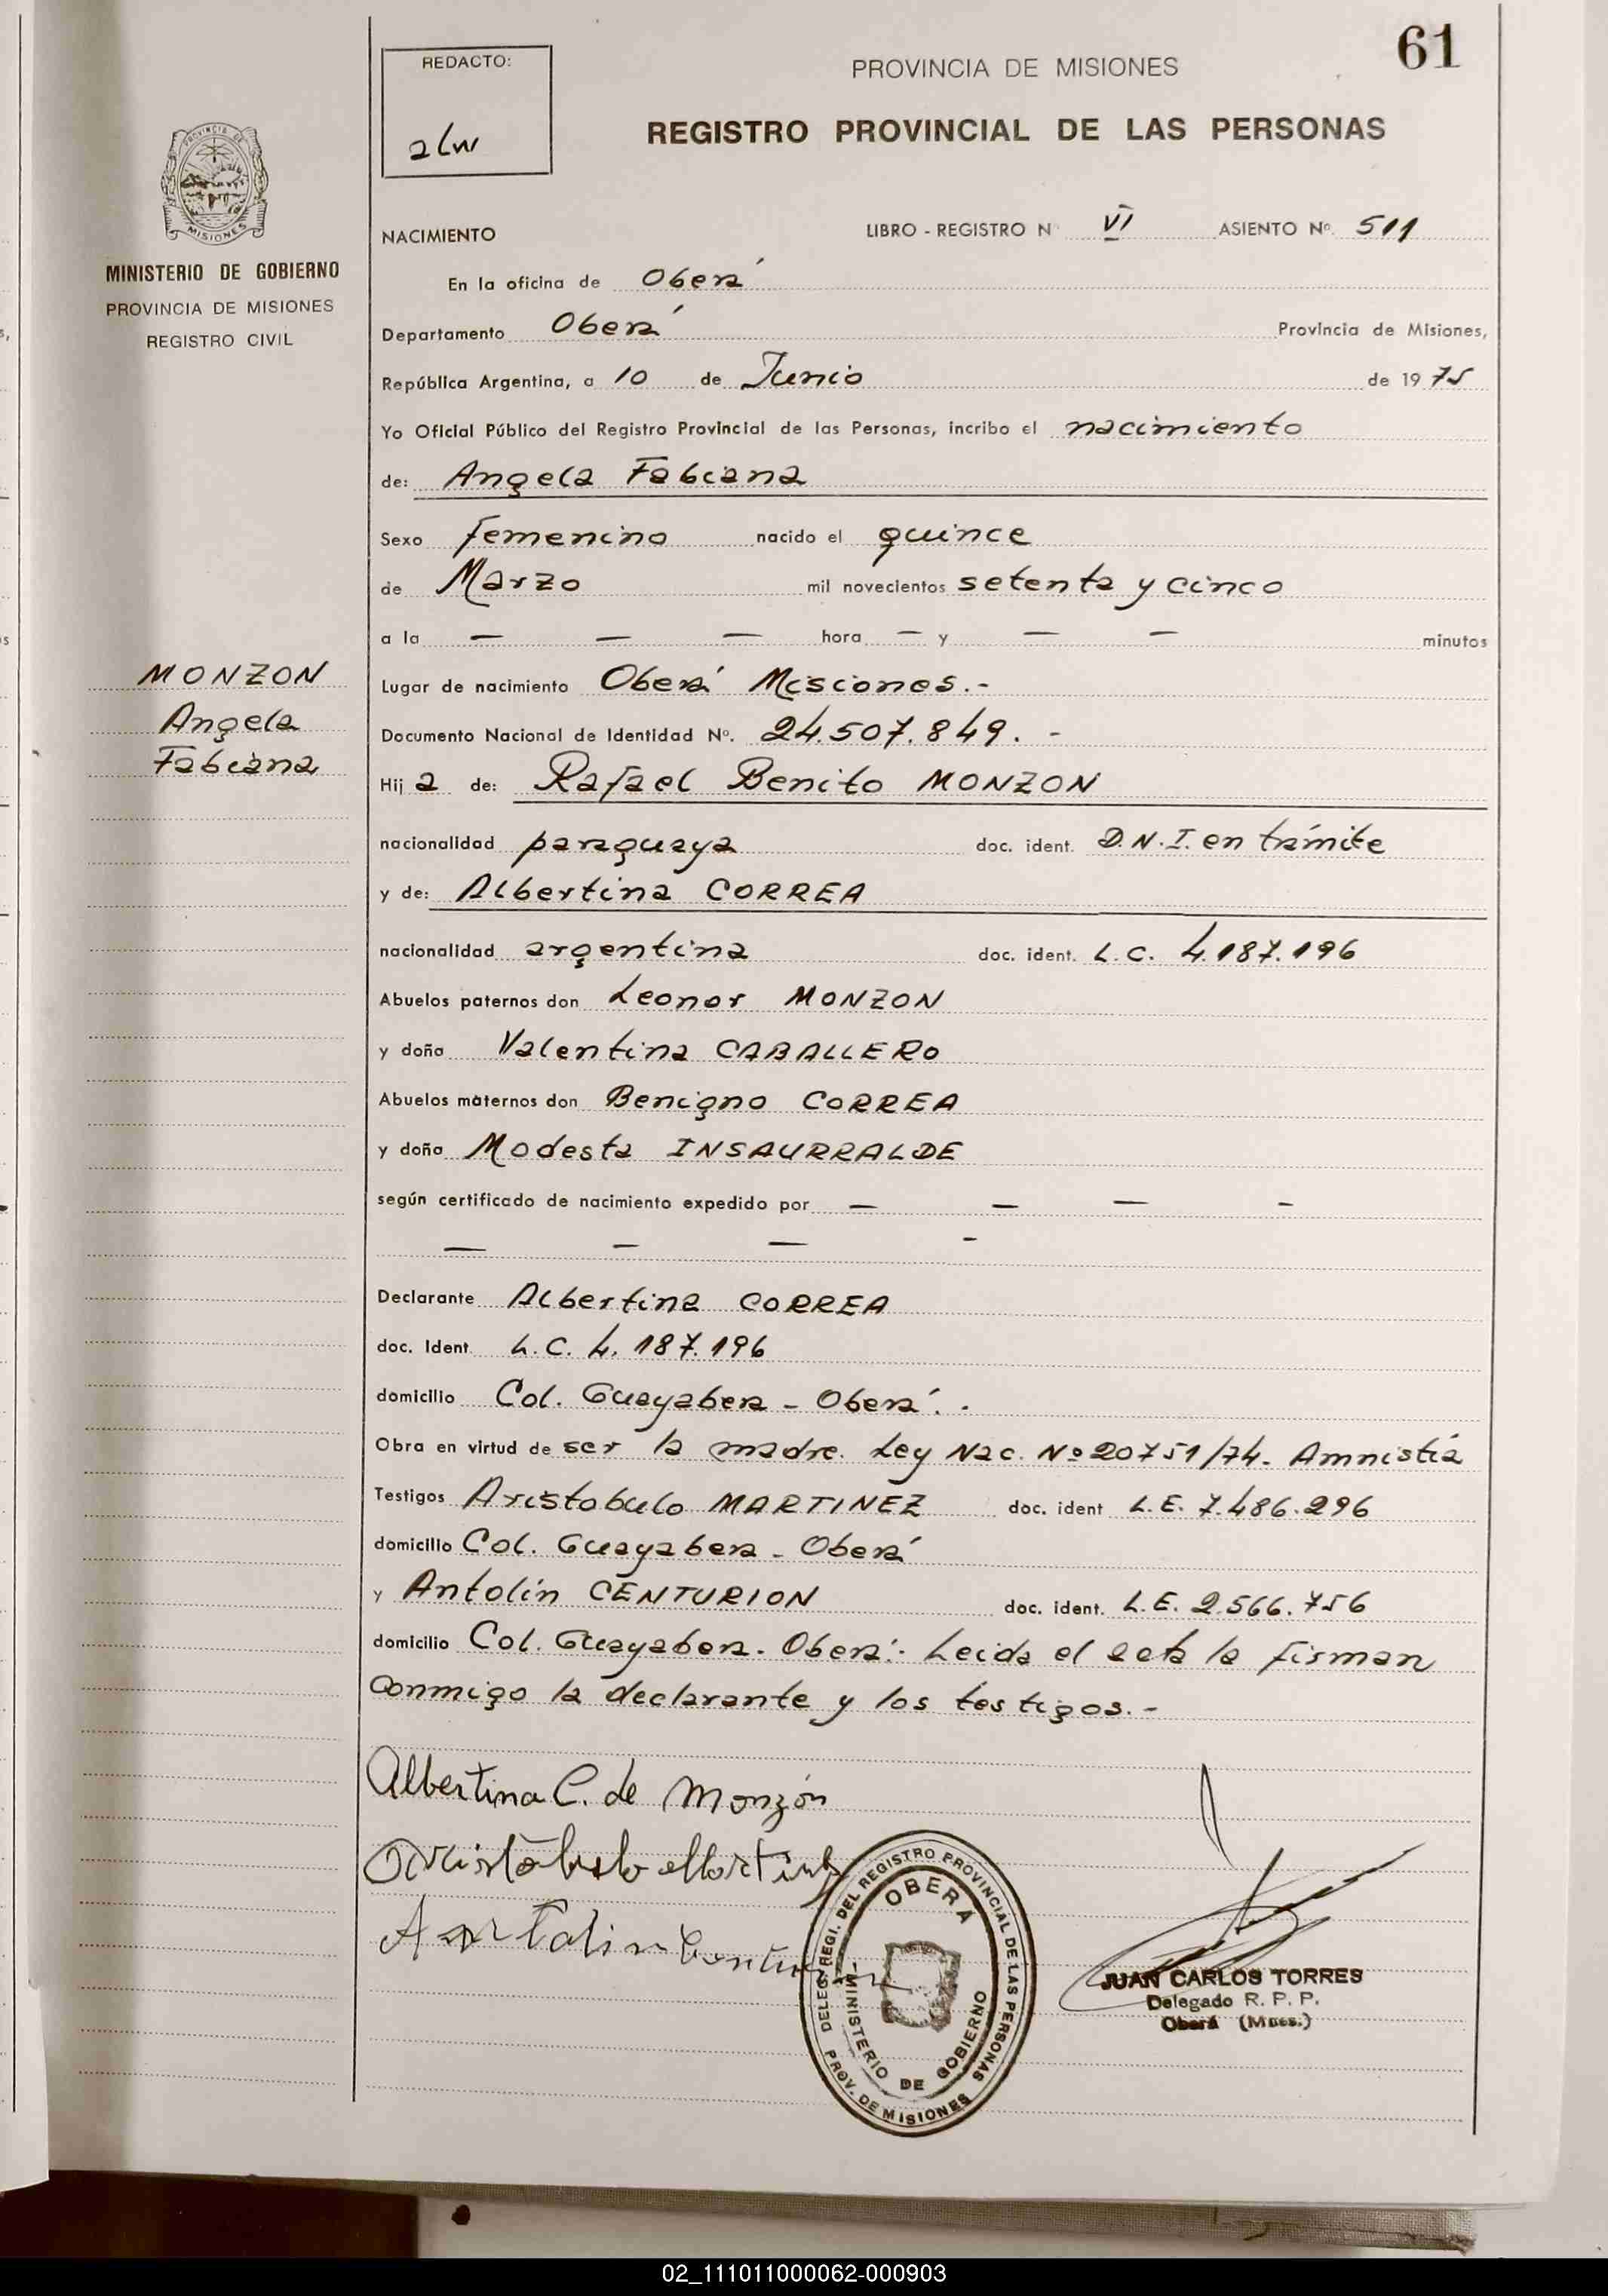 61
REDACTO:
PROVINCIA DE MISIONES
REGISTRO PROVINCIAL DE LAS PERSONAS
PROVINCIA DE
MISIONES
MINISTERIO DE GOBIERNO
PROVINCIA DE MISIONES
REGISTRO CIVIL
NACIMIENTO LIBRO - REGISTRO N VI ASIENTO Nº. 511
En la oficina de Oberá
Departamento Oberá Provincia de Misiones,
República Argentina, a 10 de Junio de 1975
Yo Oficial Público del Registro Provincial de las Personas, incribo el nacimiento
de: Angela Fabiana
Sexo femenino nacido el quince
de Marzo mil novecientos setenta y cinco
a la — — — hora — y — — minutos
MONZON
Angela
Fabiana
Lugar de nacimiento Oberá Misiones.-
Documento Nacional de Identidad Nº. 24.507.849. -
Hija de: Rafael Benito MONZON
nacionalidad paraguaya doc. ident. D.N.I. en trámite
y de: Albertina CORREA
nacionalidad argentina doc. ident. L.C. 4.187.196
Abuelos paternos don Leonor MONZON
y doña Valentina CABALLERO
Abuelos maternos don Benigno CORREA
y doña Modesta INSAURRALDE
según certificado de nacimiento expedido por — — — -
— - — -
Declarante Albertina CORREA
doc. Ident L.C. 4.187.196
domicilio Col. Guayabera - Oberá. -
Obra en virtud de ser la madre. Ley Nac. Nº 20751/74. Amnistía
Testigos Aristobulo MARTINEZ doc. ident L.E. 7.486.296
domicilio Col. Guayabera - Oberá
y Antolín CENTURION doc. ident. L.E. 2.566.756
domicilio Col. Guayabera. Oberá.- Leida el acta la firman
conmigo la declarante y los testigos.-
Albertina C. de Monzón
Aristobulo Martinez
Antolin Centurion
DELEG. REGI. DEL REGISTRO PROVINCIAL DE LAS PERSONAS
OBERA
MINISTERIO DE GOBIERNO
PROV. DE MISIONES
JUAN CARLOS TORRES
Delegado R. P. P.
Oberá (Mnes.)
02_111011000062-000903